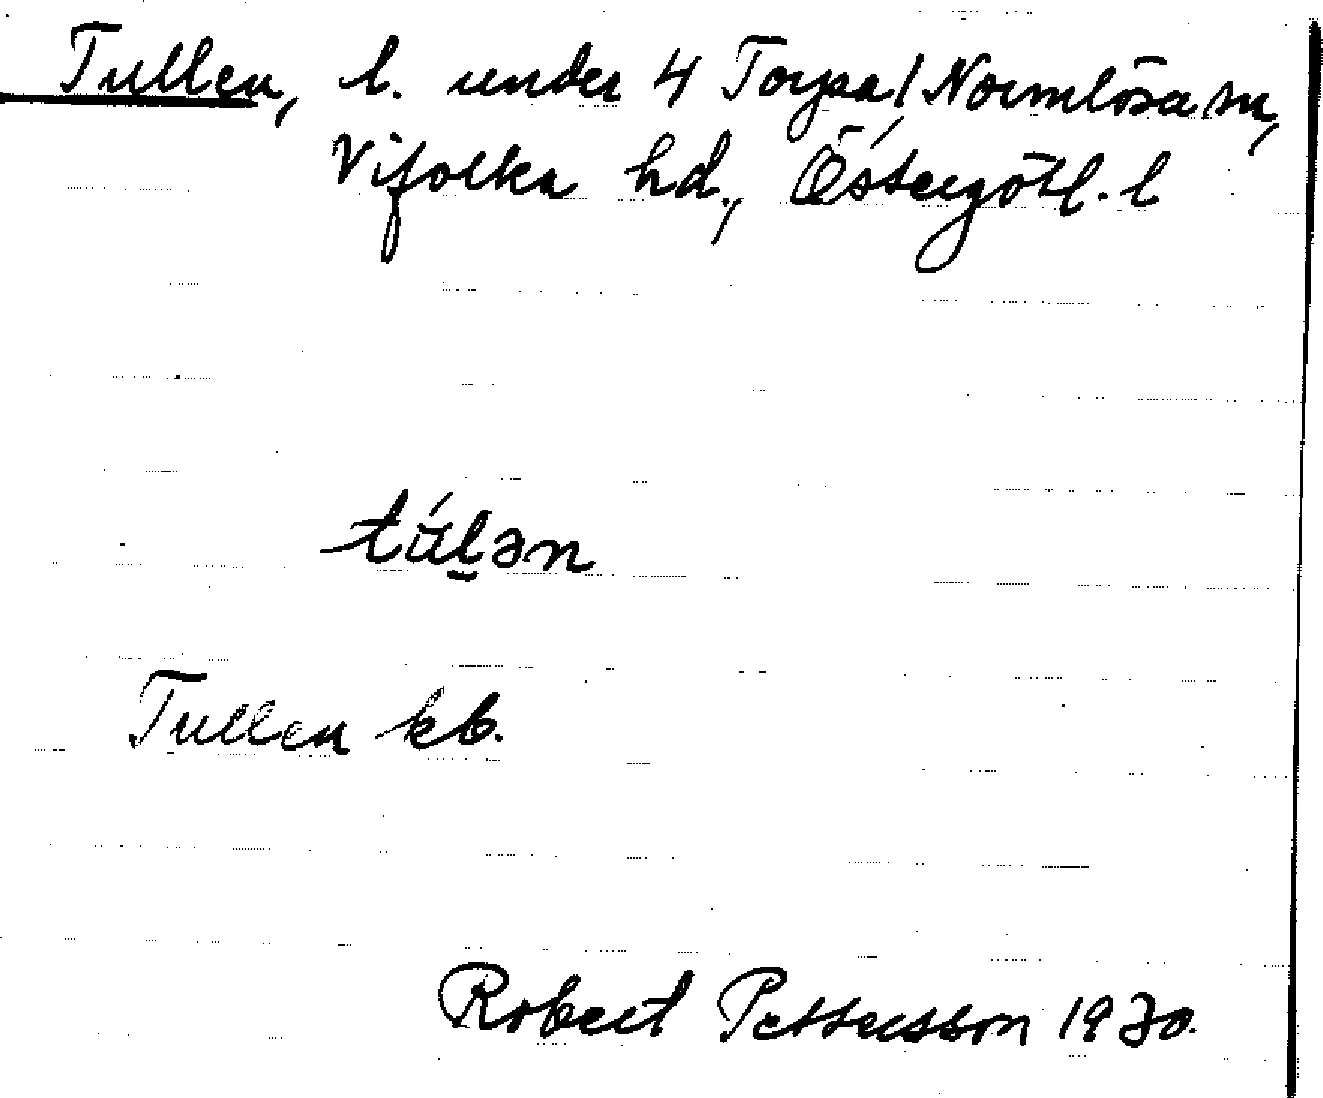 Tullen, l. under 4 Torpa, Normlösa sn,
Vifolka hd., Östergötl. l
túl̠ən
Tullen kb.
Robert Pettersson 1930.